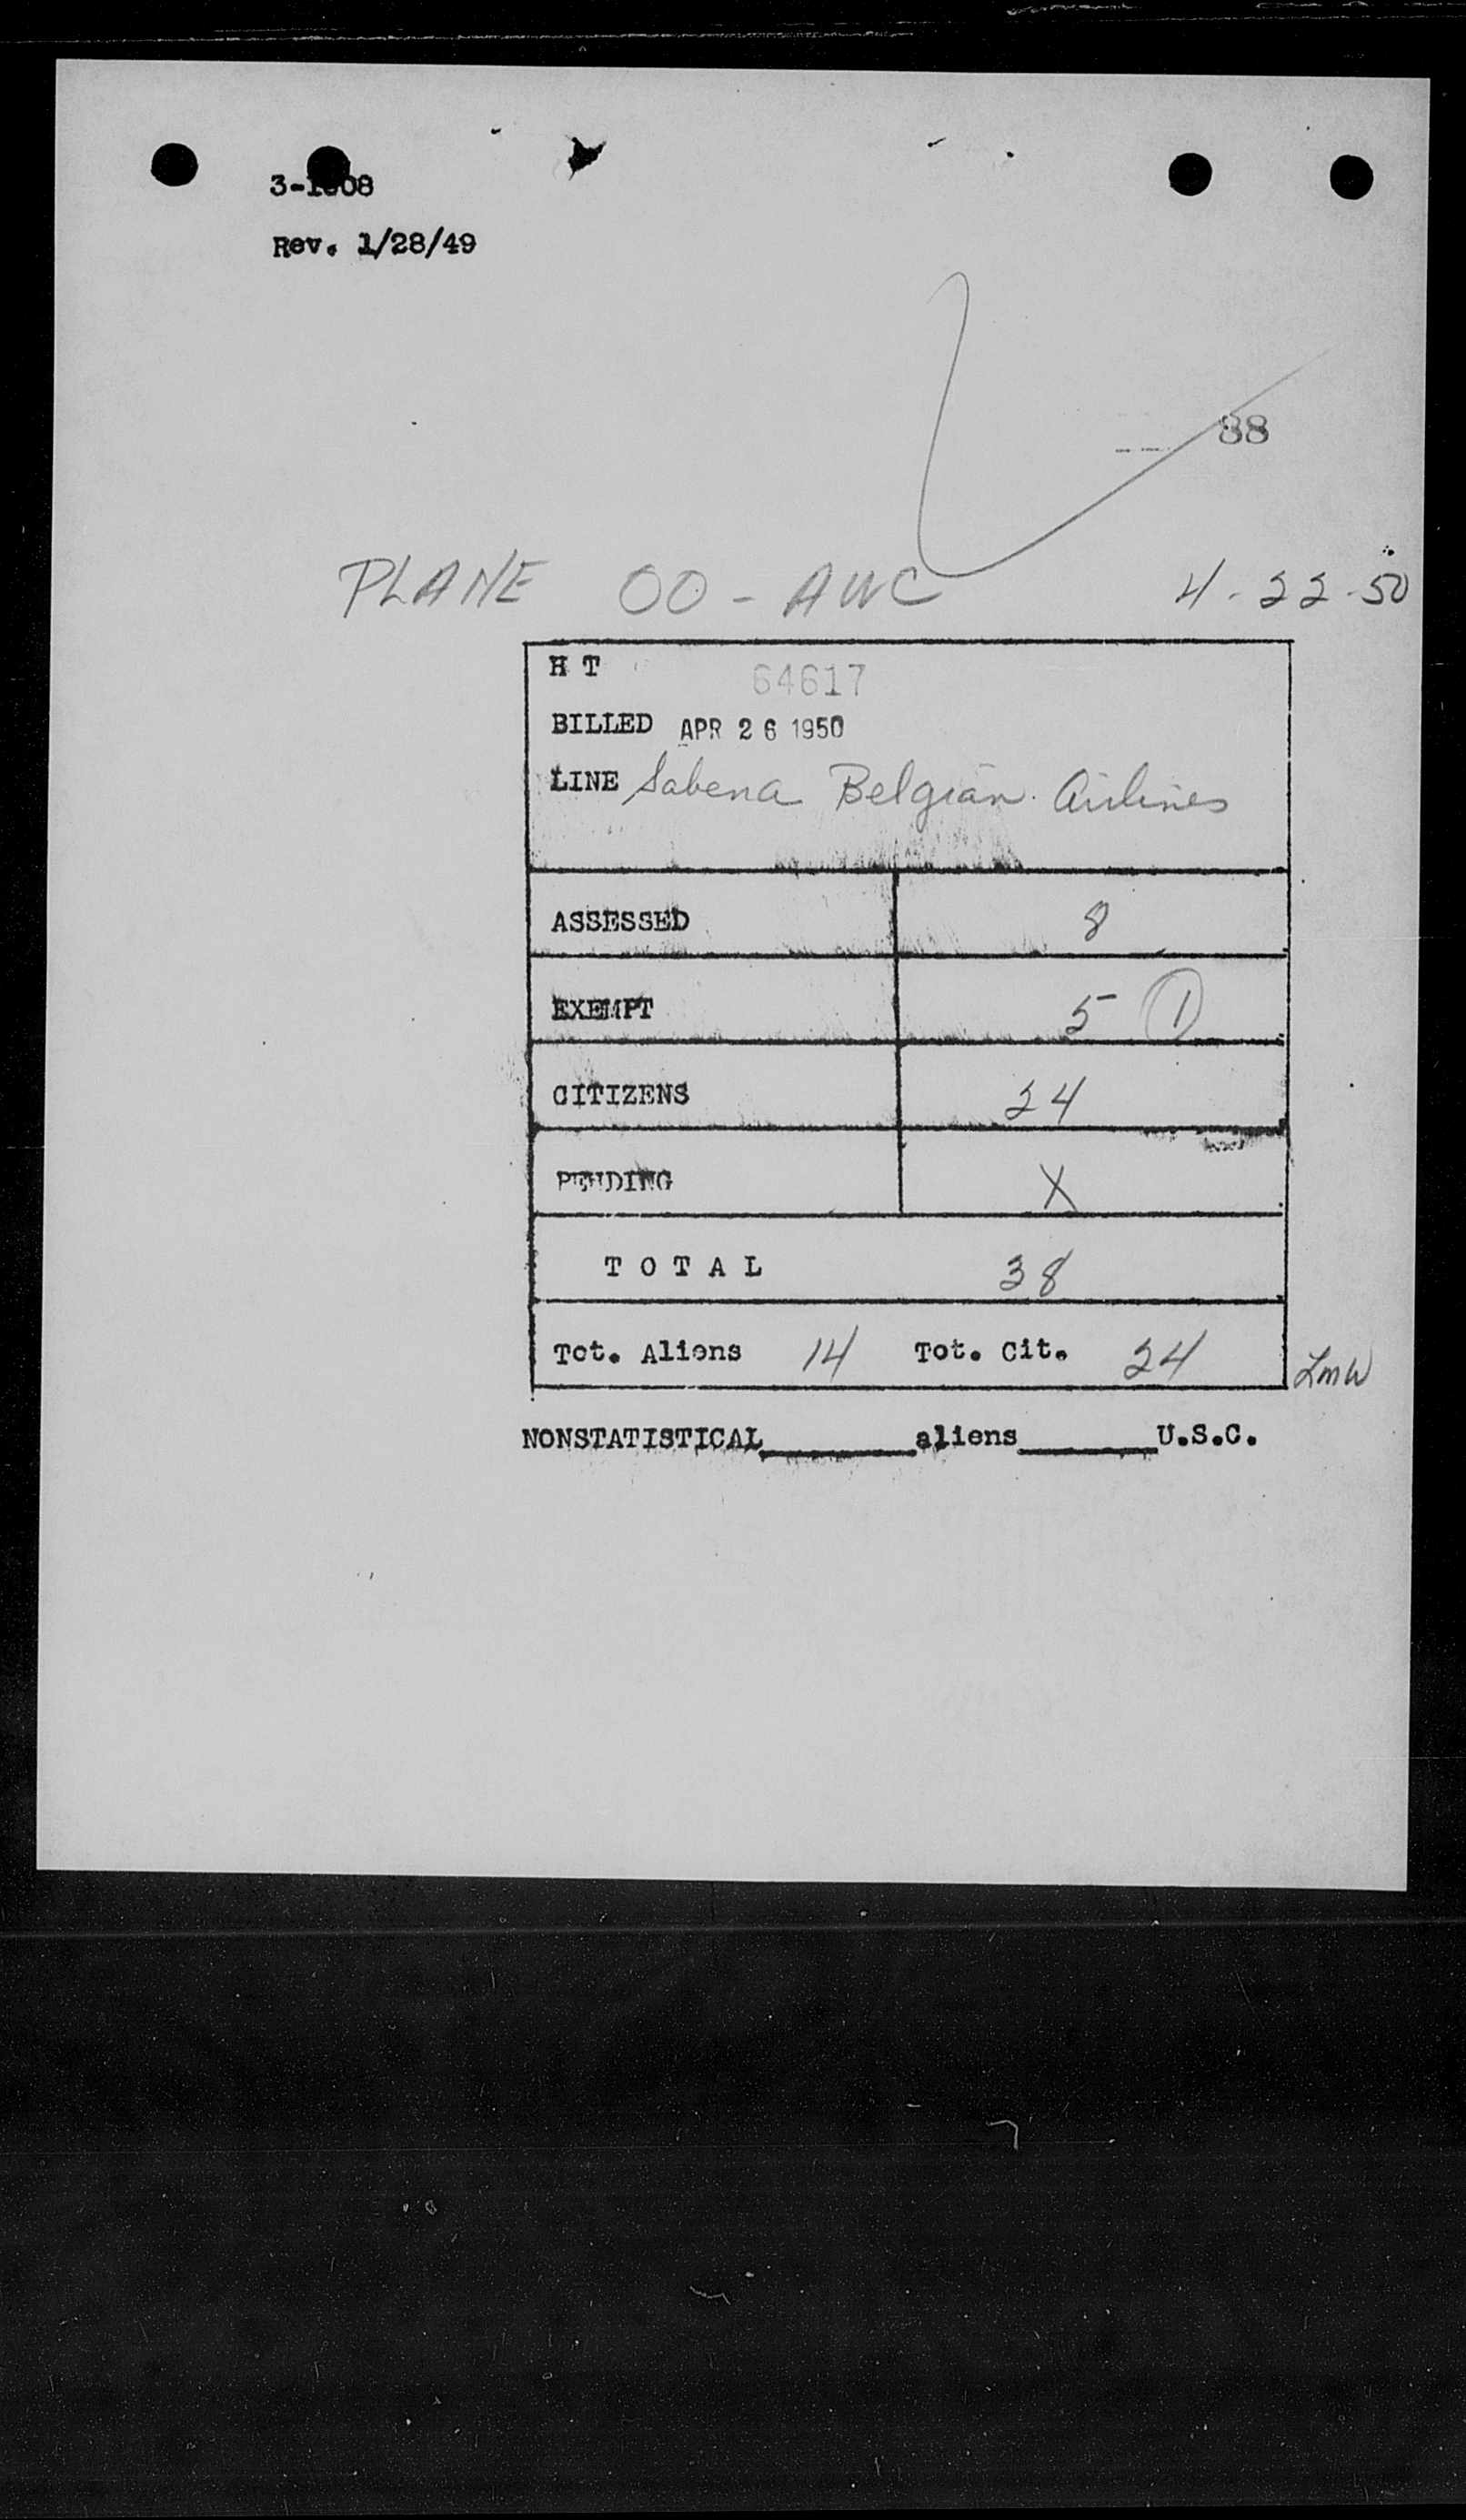 Rev. 1/28/49
88
PLANE OO - AWC 4-22-50
H T 64617
BILLED APR 26 1950
LINE Sabena Belgian Airlines
ASSESSED 8
EXEMPT 5 1
CITIZENS 24
PENDING X
TOTAL 38
Tot. Aliens 14 Tot. Cit. 24 LMW
NONSTATISTICAL________aliens_______U.S.C.